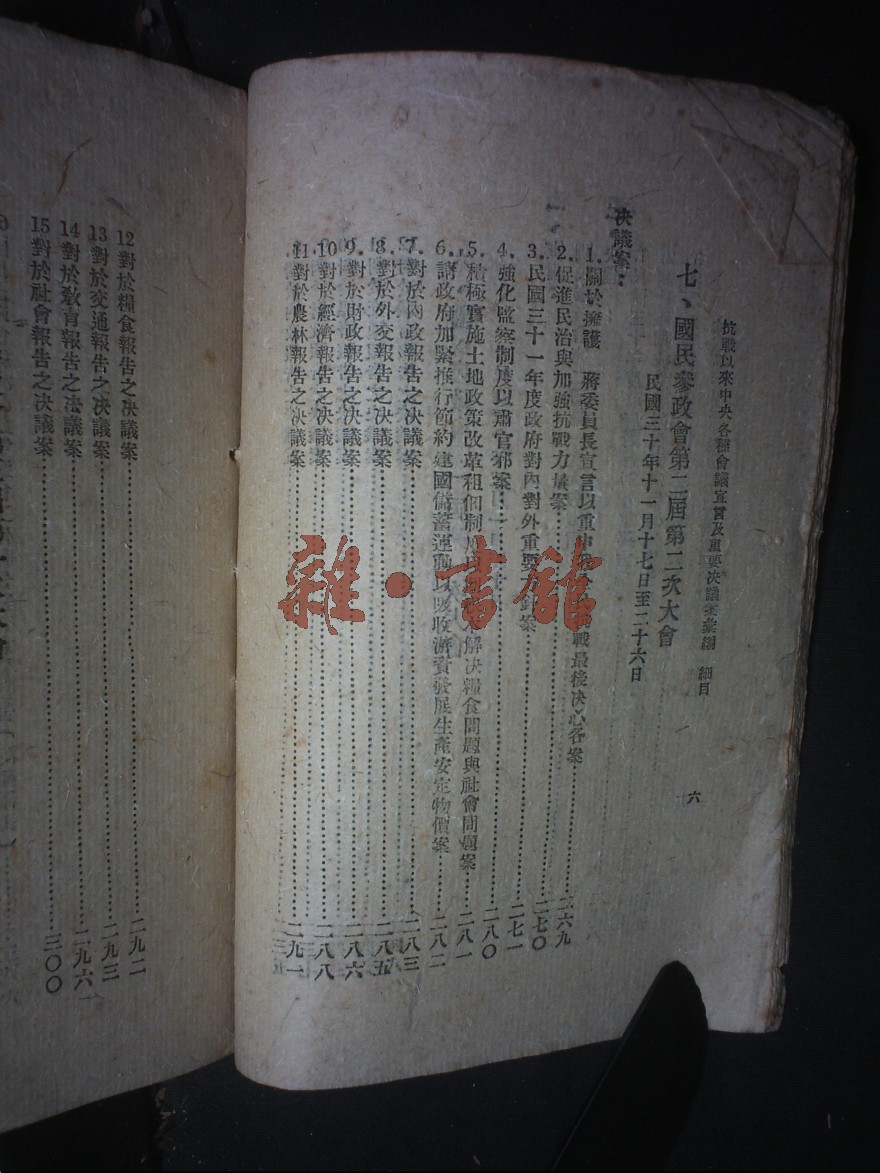 抗戰以來中央各種會議宣言及重要決議案彙編 細目
六
七、國民參政會第二屆第二次大會
民國三十年十一月十七日至二十六日
決議案：
1. 關於擁護 蔣委員長宣言以重申 戰最後決心各案 二六九
2. 促進民治與加強抗戰力量案 二七〇
3. 民國三十一年度政府對內對外重要 針案 二七一
4. 強化監察制度以肅官邪案 二八〇
5. 積極實施土地政策改革租佃制度 解決糧食問題與社會問題案 二八一
6. 請政府加緊推行節約建國儲蓄運動以吸收游資發展生產安定物價案 二八二
7. 對於內政報告之決議案 二八三
8. 對於外交報告之決議案 二八五
9. 對於財政報告之決議案 二八六
10 對於經濟報告之決議案 二八八
11 對於農林報告之決議案 二九一
12 對於糧食報告之決議案 二九二
13 對於交通報告之決議案 二九三
14 對於教育報告之決議案 二九六
15 對於社會報告之決議案 三〇〇
雜·書館